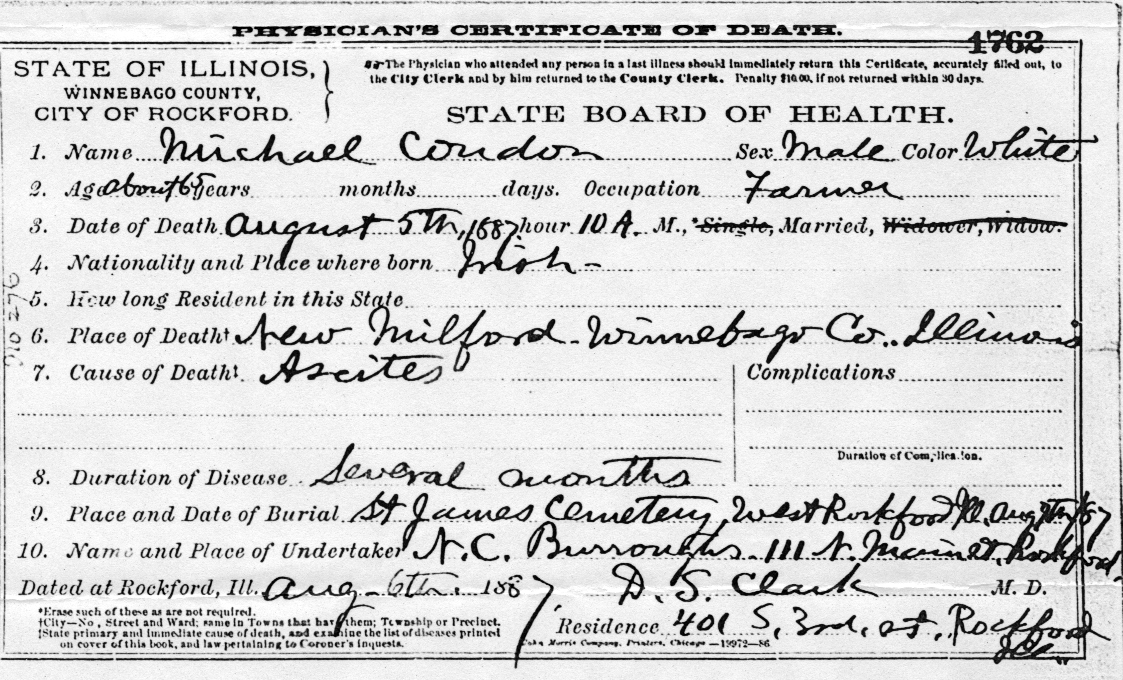 PHYSICIAN'S CERTIFICATE OF DEATH.
1762
STATE OF ILLINOIS,
WINNEBAGO COUNTY,
CITY OF ROCKFORD.
The Physician who attended any person in a last illness should immediately return this Certificate, accurately filled out, to
the City Clerk and by him returned to the County Clerk. Penalty $10.00, if not returned within 30 days.
STATE BOARD OF HEALTH.
1. Name Michael Condon Sex Male Color White
2. Age about 65 years months days. Occupation Farmer
3. Date of Death August 5th, 1887 hour 10 A. M., *Single, Married, Widower, Widow.
4. Nationality and Place where born Irish -
5. How long Resident in this State
6. Place of Death† New Milford Winnebago Co. Illinois
7. Cause of Death‡ Ascites Complications
Duration of Complication.
8. Duration of Disease Several months
9. Place and Date of Burial St James Cemetery, West Rockford Ill. Aug 7th/87
10. Name and Place of Undertaker N. C. Burroughs 111 N. Main St. Rockford.
Dated at Rockford, Ill. Aug 6th, 1887 D. S. Clark M. D.
*Erase such of these as are not required.
†City—No., Street and Ward; same in Towns that have them; Township or Precinct.
‡State primary and immediate cause of death, and examine the list of diseases printed
on cover of this book, and law pertaining to Coroner's inquests.
Residence 401 S. 3rd. St. Rockford
Ills
John Morris Company, Printers, Chicago —19972—86.